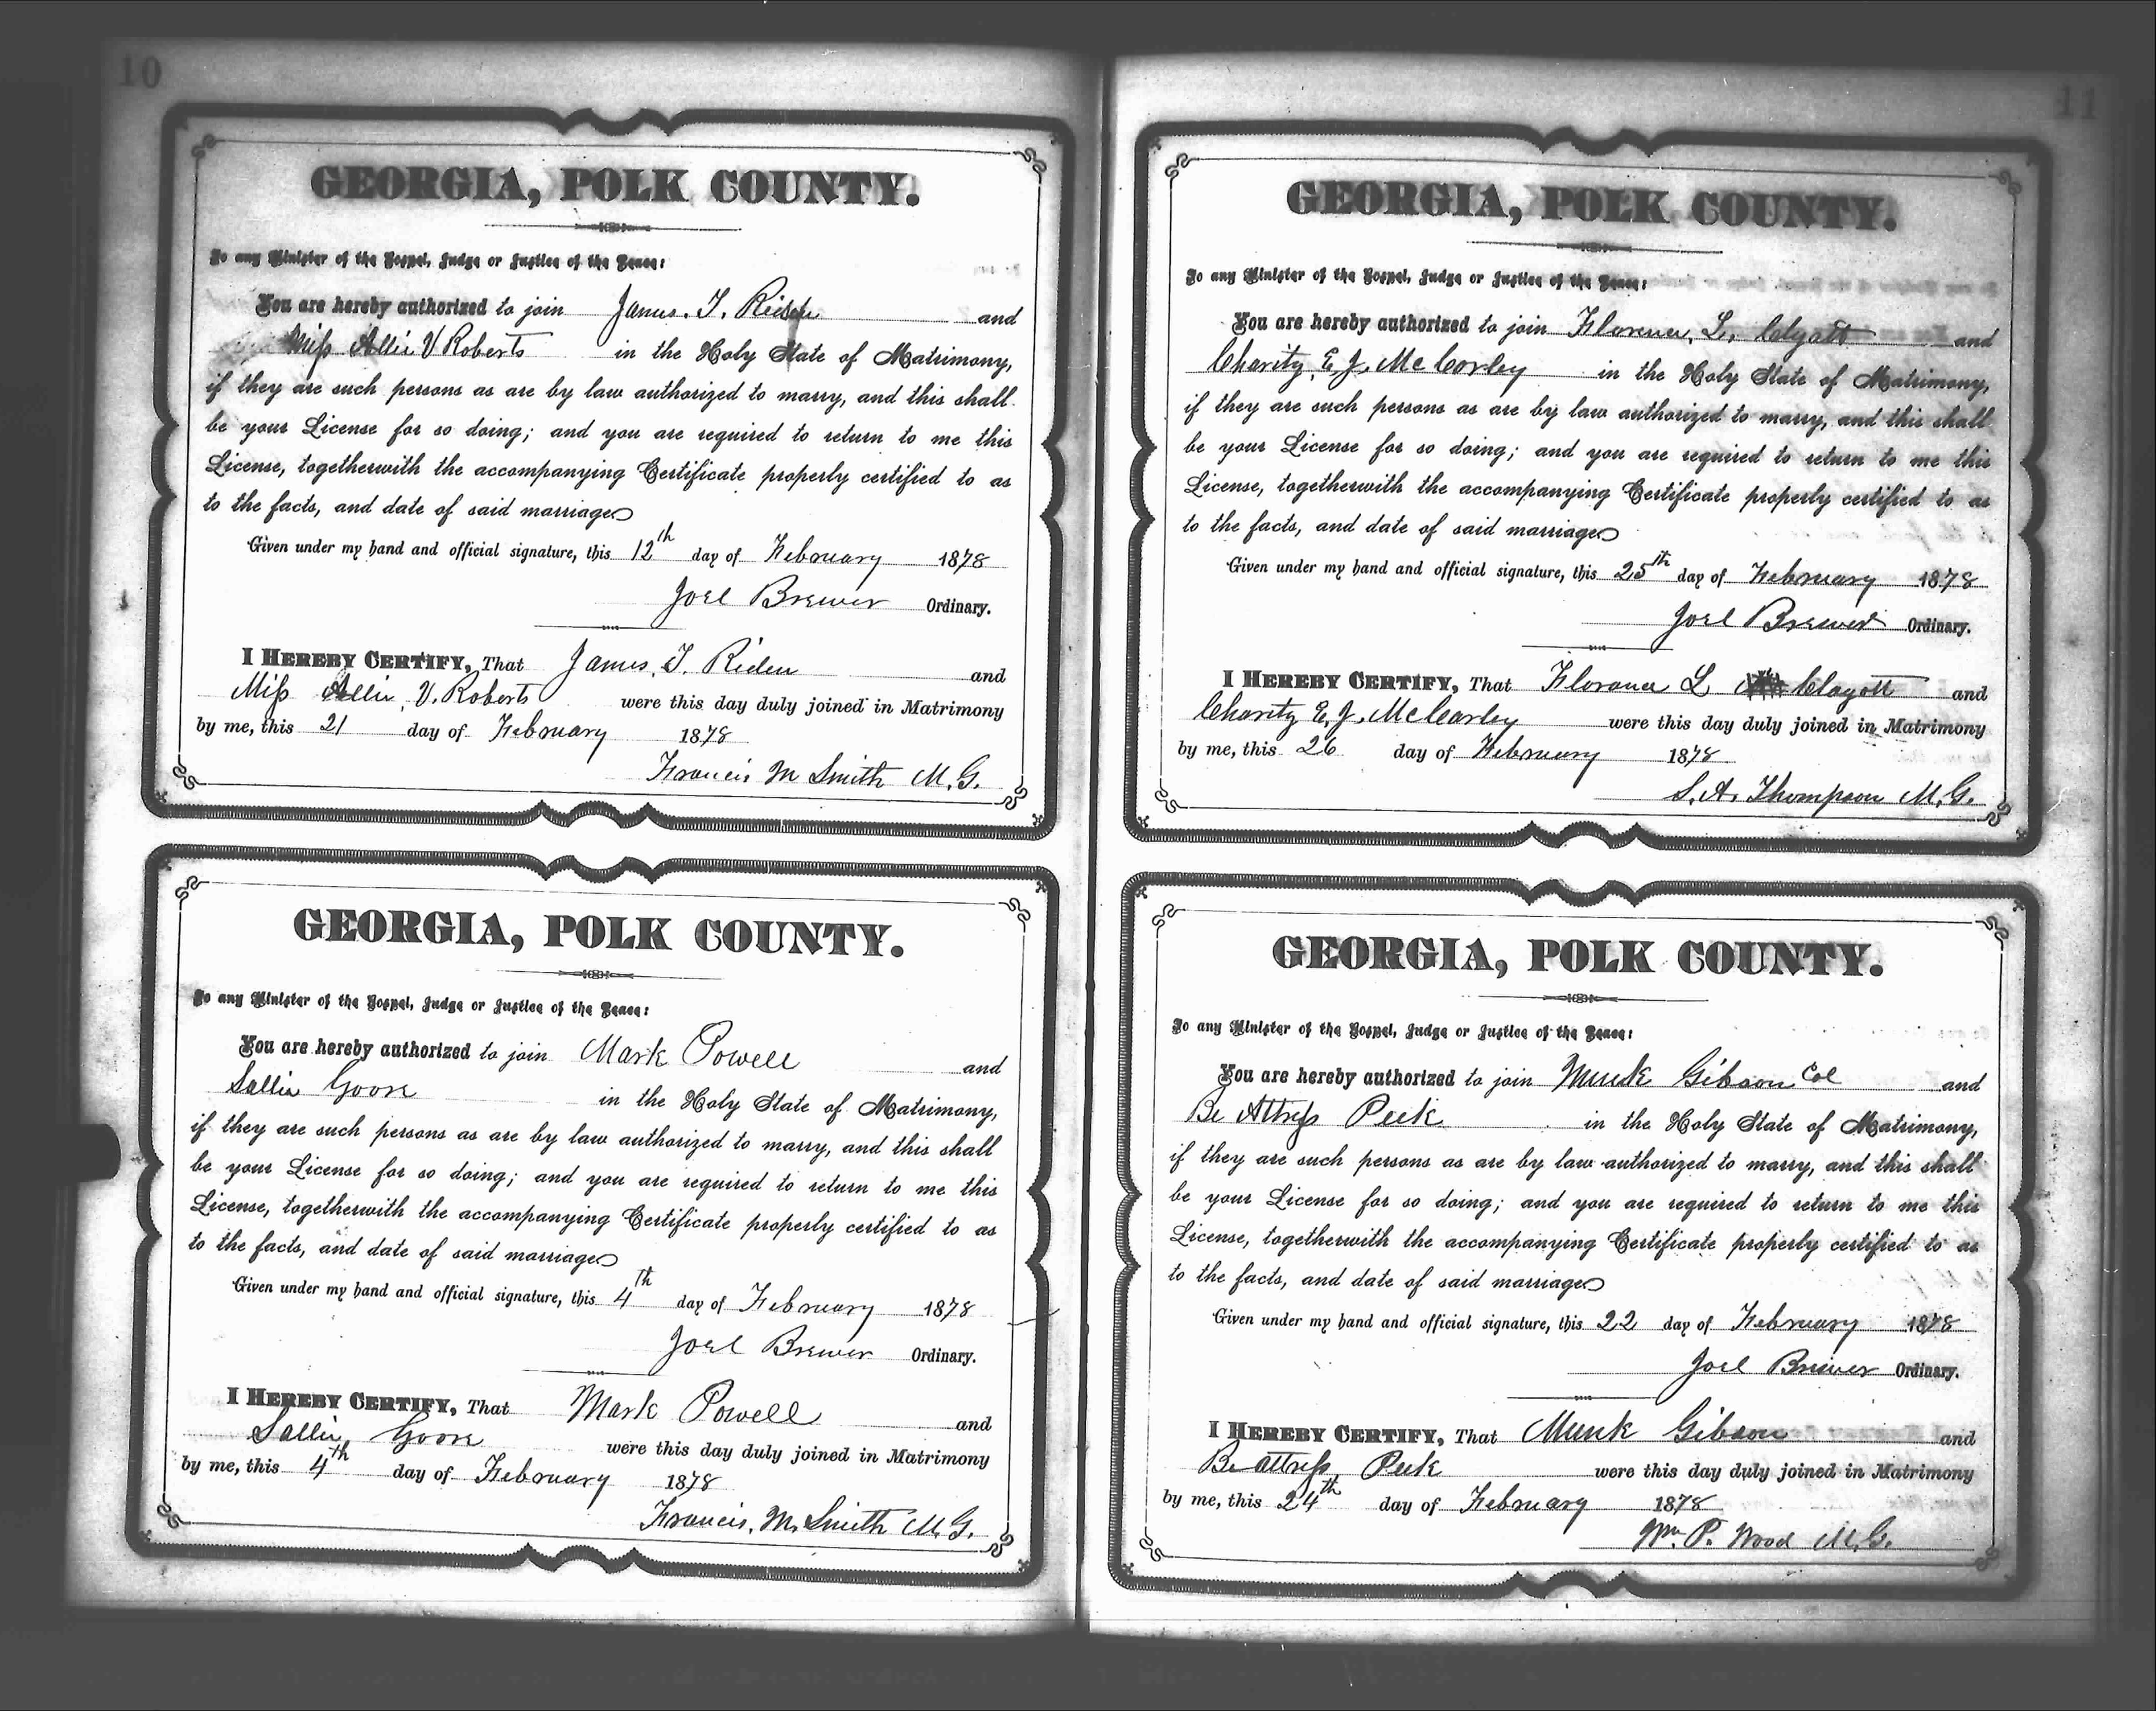 10
GEORGIA, POLK COUNTY.
To any Minister of the Gospel, Judge or Justice of the Peace:
You are hereby authorized to join James. T. Riden and
Miss Allie V Roberts in the Holy State of Matrimony,
if they are such persons as are by law authorized to marry, and this shall
be your License for so doing; and you are required to return to me this
License, togetherwith the accompanying Certificate properly certified to as
to the facts, and date of said marriage
Given under my hand and official signature, this 12th day of February 1878
Joel Brewer Ordinary.
I HEREBY CERTIFY, That James. T. Riden and
Miss Allie, V. Roberts were this day duly joined in Matrimony
by me, this 21 day of February 1878
Francis M Smith M.G.
GEORGIA, POLK COUNTY.
To any Minister of the Gospel, Judge or Justice of the Peace:
You are hereby authorized to join Mark Powell and
Sallie Goore in the Holy State of Matrimony,
if they are such persons as are by law authorized to marry, and this shall
be your License for so doing; and you are required to return to me this
License, togetherwith the accompanying Certificate properly certified to as
to the facts, and date of said marriage
Given under my hand and official signature, this 4th day of February 1878
Joel Brewer Ordinary.
I HEREBY CERTIFY, That Mark Powell and
Sallie Goore were this day duly joined in Matrimony
by me, this 4th day of February 1878
Francis, M. Smith M.G.
11
GEORGIA, POLK COUNTY.
To any Minister of the Gospel, Judge or Justice of the Peace:
You are hereby authorized to join Florence, L, Clyatt and
Charity, E J. McCorley in the Holy State of Matrimony,
if they are such persons as are by law authorized to marry, and this shall
be your License for so doing; and you are required to return to me this
License, togetherwith the accompanying Certificate properly certified to as
to the facts, and date of said marriage
Given under my hand and official signature, this 25th day of February 1878
Joel Brewer Ordinary.
I HEREBY CERTIFY, That Florance L Clayott and
Charity E, J. McCarley were this day duly joined in Matrimony
by me, this 26 day of February 1878
S. A. Thompson M.G.
GEORGIA, POLK COUNTY.
To any Minister of the Gospel, Judge or Justice of the Peace:
You are hereby authorized to join Munk Gibson Col and
Be Attress Peek in the Holy State of Matrimony,
if they are such persons as are by law authorized to marry, and this shall
be your License for so doing; and you are required to return to me this
License, togetherwith the accompanying Certificate properly certified to as
to the facts, and date of said marriage
Given under my hand and official signature, this 22 day of February 1878
Joel Brewer Ordinary.
I HEREBY CERTIFY, That Munk Gibson and
Be attress Peek were this day duly joined in Matrimony
by me, this 24th day of February 1878
Wm. P. Wood M.G.